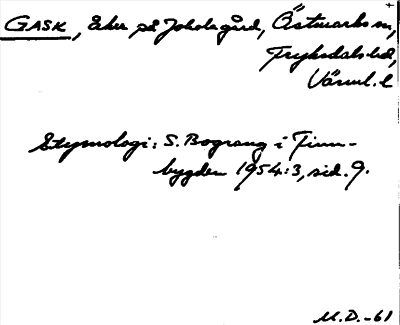 GASK, åker på Joholsgård, Östmarks sn,
Fryksdals hd,
Värml. l
Etymologi: S. Bograng i Finn-
bygden 1954:3, sid. 9.
M.D.-61